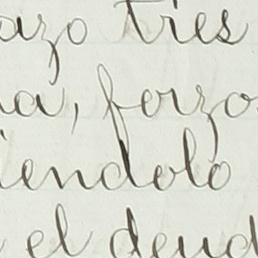 azo tres
na, forzo
iendolo
y el deud